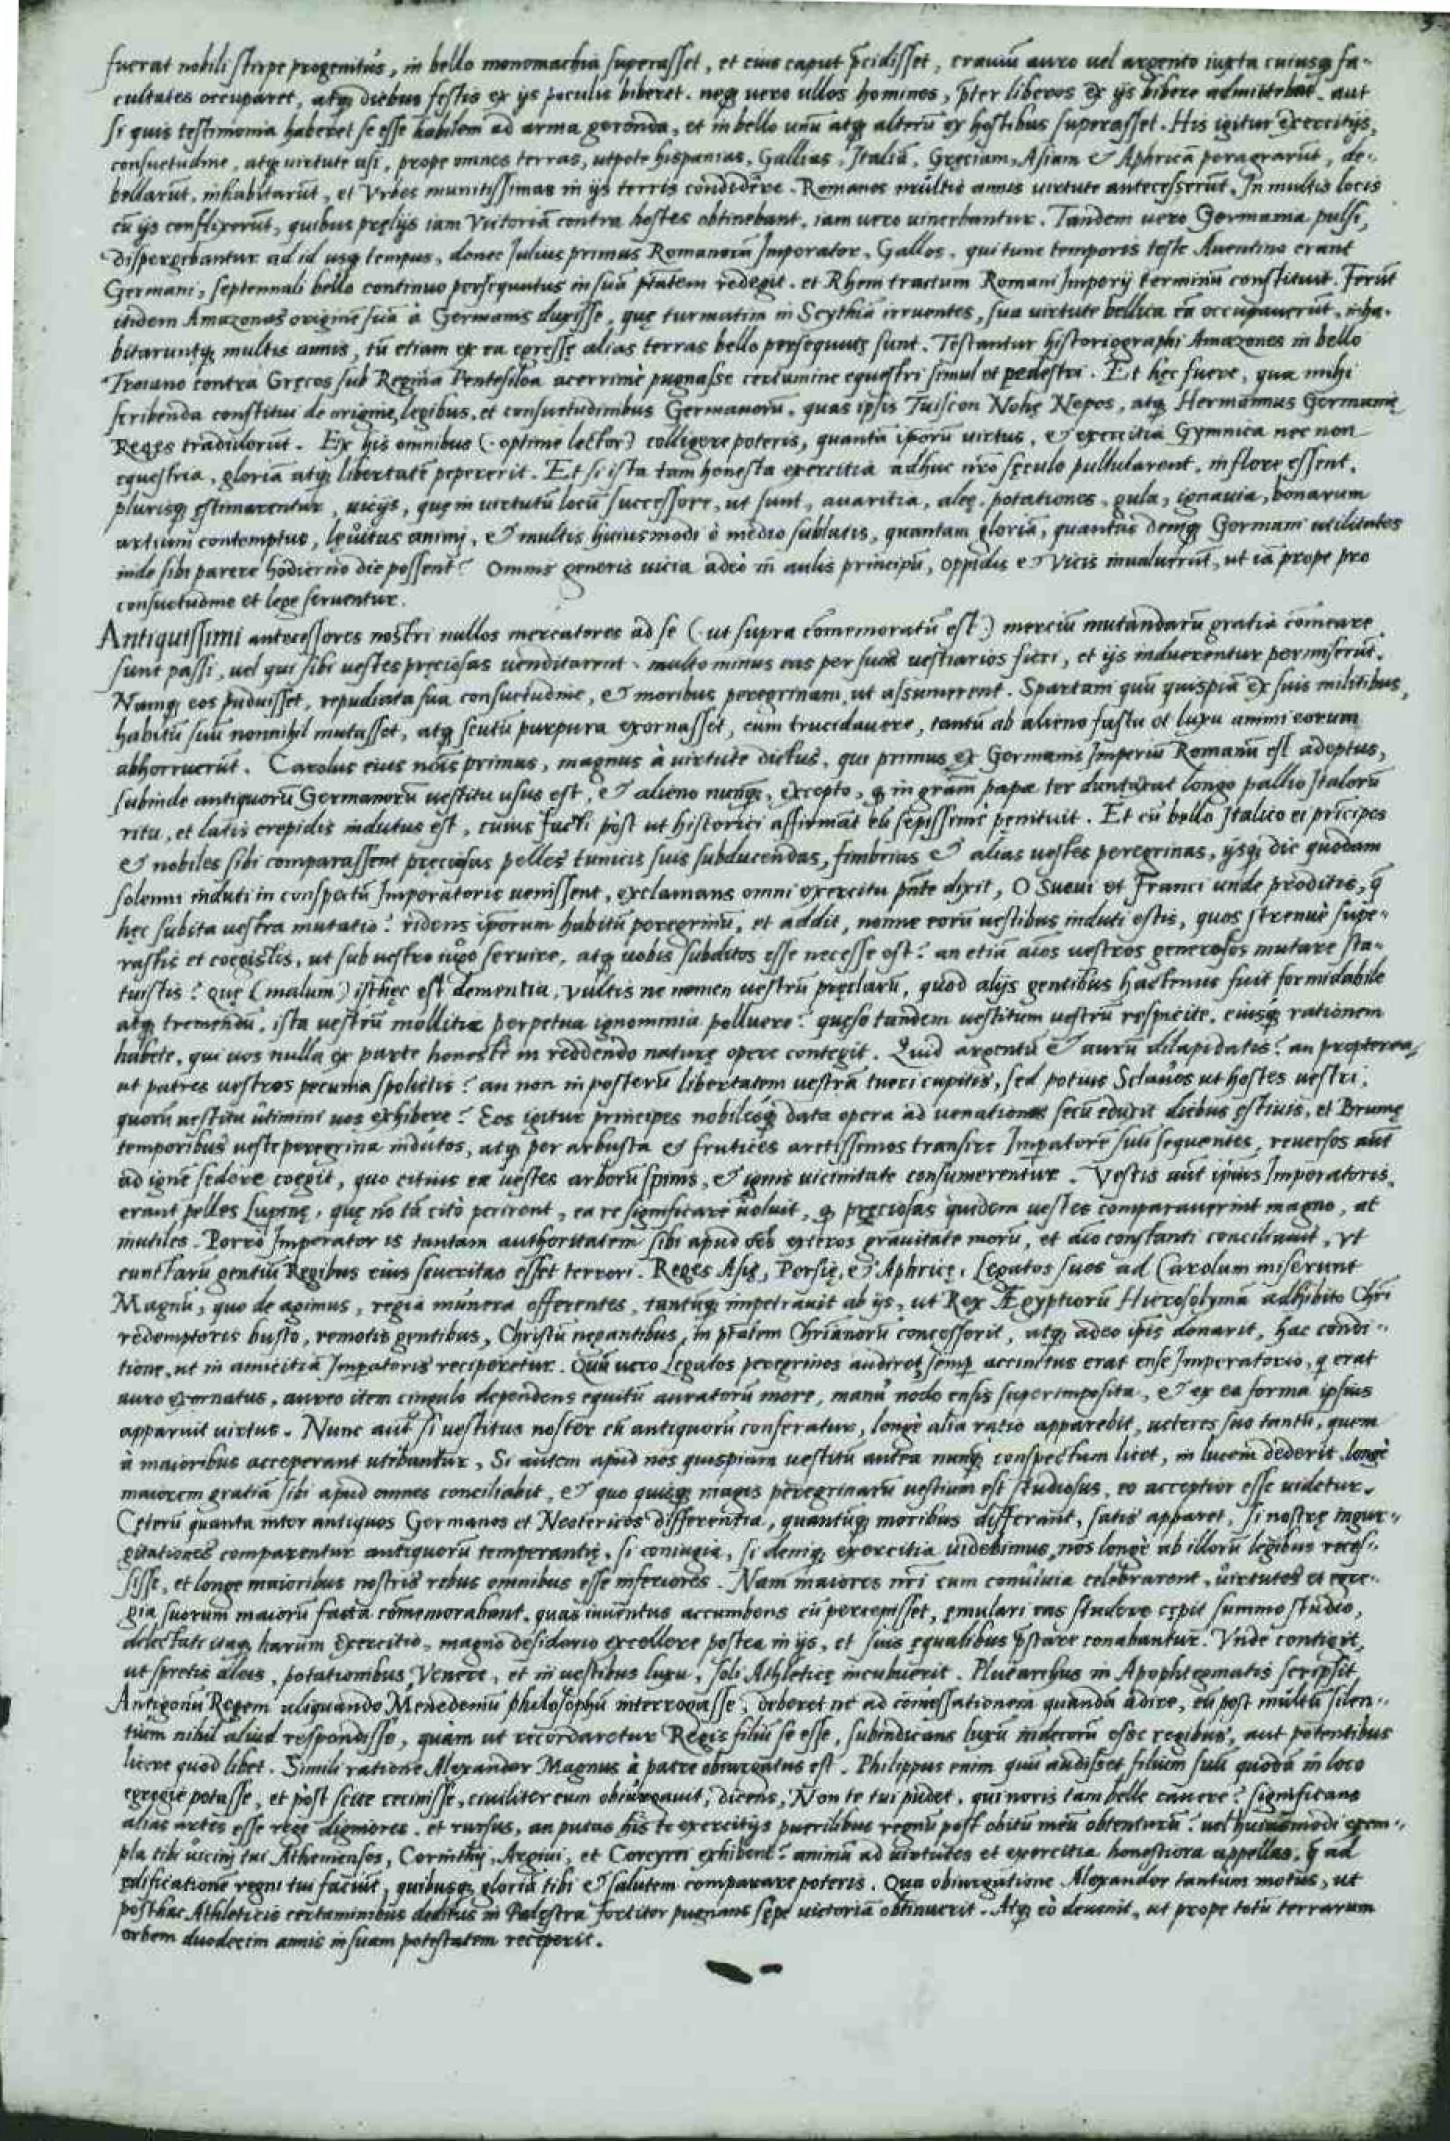 fuerat nobili stirpe progenitus, in bello monomachia superasset, et eius caput p̄cidisset, craniū auro uel argento iuxta cuiusq; fa-
cultates occuparet, atq; diebus festis ex ijs poculis biberet. neq; uero ullos homines, p̄ter liberos ex ijs bibere admittebat. aut
si quis testimonia haberet se esse habilem ad arma gerenda, et in bello unū atq; alterū ex hostibus superasset. His igitur exercitijs,
consuetudine, atq; uirtute usi, prope omnes terras, utpote hispanias, Gallias, Italiā, Gręciam, Asiam & Aphricā peragrarūt, de-
bellarūt, inhabitarūt, et Vrbes munitissimas in ijs terris condidêre. Romanos multis annis uirtute antecesserūt. In multis locis
cū ijs conflixerūt, quibus pręlijs iam Victoriā contra hostes obtinebant, iam uero uincebantur. Tandem uero Germania pulsi,
dispergebantur ad id usq; tempus, donec Julius primus Romanorū Imperator, Gallos, qui tunc temporis teste Auentino erant
Germani, septennali bello continuo persequutus in suā p̄tatem redegit. et Rheni tractum Romani Imperij terminū constituit. Ferūt
itidem Amazonas originē suā à Germanis duxisse, quę turmatim in Scythiā irruentes, sua uirtute bellica eā occupauerūt, inha-
bitaruntq; multis annis, tū etiam ex ea egressę alias terras bello persequutę sunt. Testantur historiographi Amazones in bello
Troiano contra Gręcos sub Regina Pentesilea acerrimè pugnasse certamine equestri simul et pedestri. Et hęc fuere, qua mihi
scribenda constitui de origine, legibus, et consuetudinibus Germanorū, quas ipsis Tuiscon Nohę Nepos, atq; Hermannus Germanię
Reges tradiderūt. Ex his omnibus (optime lector) colligere poteris, quantā ip̄orū uirtus, & exercitia Gymnica nec non
equestria, gloriā atq; libertatē pepererit. Et si ista tam honesta exercitia adhuc nr̄o sęculo pullularent, in flore essent,
plurisq; ęstimarentur, uicijs, quę in uirtutū locū successere, ut sunt, auaritia, aleę, potationes, gula, ignauia, bonarum
artium contemptus, lęuitas animi, & multis huiusmodi ò medio sublatis, quantam gloriā, quantas deniq; Germani utilitates
inde sibi parere hodierno die possent? Omnis generis uicia adeò in aulis principū, oppidis & Vicis inualuerūt, ut iā prope pro
consuetudine et lege seruentur.
Antiquissimi antecessores nostri nullos mercatores ad se (ut supra com̄emoratū est) merciū mutandarū gratia com̄eare
sunt passi, uel qui sibi uestes pręciosas uenditarent. multo minus eas per suos uestiarios fieri, et ijs induerentur permiserūt.
Namq; eos puduisset, repudiata sua consuetudine, & moribus peregrinam, ut assumerent. Spartani quū quispiā ex suis militibus,
habitū suū nonnihil mutasset, atq; scutū purpura exornasset, eum trucidauere, tantū ab alieno fastu et luxu animi eorum
abhorruerūt. Carolus eius nōis primus, magnus à uirtute dictus, qui primus ex Germanis Imperiū Romanū est adeptus,
subinde antiquorū Germanorū uestitu usus est, & alieno nunq;, excepto, q; in grām papæ ter duntaxat longo pallio Italorū
ritu, et latis crepidis indutus est, cuius facti post ut historici affirmāt eū sępissime penituit. Et cū bello Italico ei prīcipes
& nobiles sibi comparassent pręciosas pelles tunicis suis subducendas, fimbrias & alias uestes peregrinas, ijsq; die quodam
solenni induti in conspectū Imperatoris uenissent, exclamans omni exercitu p̄nte dixit, O Sueui et Franci unde proditis, q̄
hęc subita uestra mutatio? ridens ip̄orum habitū peregrinū, et addit, nonne eorū uestibus induti estis, quos strenuè supe-
rastis et coegistis, ut sub uestro iugo seruire, atq; uobis subditos esse necesse est? an etiā aīos uestros generosos mutare sta-
tuistis? Quę (malum) isthęc est dementia, vultis ne nomen uestrū pręclarū, quod alijs gentibus hactenus fuit formidabile
atq; tremendū, ista uestrū mollitie perpetua ignominia polluere? quęso tandem uestitum uestrū respicite, eiusq; rationem
habete, qui uos nulla ex parte honestè in reddendo naturę opere contegit. Quid argentū & aurū dilapidatis? an propterea,
ut patres uestros pecunia spolietis? an non in posterū libertatem uestrā tueri cupitis, sed potius Sclauos ut hostes uestri,
quorū uestitu ûtimini uos exhibere? Eos igitur principes nobilesq; data opera ad uenationes secū eduxit diebus ęstiuis, et Brumę
temporibus ueste peregrina indutos, atq; per arbusta & frutices arctissimos transire Imp̄atorē suū sequentes, reuersos aūt
ad ignē sedere coegit, quo citius eæ uestes arborū spinis, & ignis uicinitate consumerentur. Vestis aūt ipsius Imperatoris,
erant pelles Lupinę, quę nō tā citò perirent, ea re significare uoluit, q; pręciosas quidem uestes comparauerint magno, at
inutiles. Porrò Imperator is tantam authoritatem sibi apud oēs exteros grauitate morū, et aīo constanti conciliauit, ut
cunctarū gentiū Regibus eius seueritas esset terrori. Reges Asię, Persię, & Aphricę, Legatos suos ad Carolum miserunt
Magnū, quo de agimus, regia munera offerentes, tantūq; impetrauit ab ijs, ut Rex Ægyptiorū Hierosolymā adhibito Chr̄i
redemptoris busto, remotis gentibus, Christū negantibus, in p̄tatem Chr̄ianorū concesserit, atq; adeo ip̄is donarit, hac condi-
tione, ut in amicitiā Imp̄atoris reciperetur. Quū uero Legatos peregrinos audiret, semp̄ accinctus erat ense Imperatorio, q; erat
auro exornatus, aureo item cingulo dependens equitū auratorū more, manu nodo ensis superimposita, & ex ea forma ipsius
apparuit uirtus. Nunc aūt si uestitus noster cū antiquorū conferatur, longè alia ratio apparebit, ueteres suo tantū, quem
à maioribus acceperant utebantur, Si autem apud nos quispiam uestitū antea nunq; conspectum licet, in lucem dederit, longè
maiorem gratiā sibi apud omnes conciliabit, & quo quisq; magis peregrinarū uestium est studiosus, eo acceptior esse uidetur.
Cęterū quanta inter antiquos Germanos et Neotericos differentia, quantūq; moribus differant, satis apparet, si nostrę ingur-
gitationes comparentur antiquorū temperantię, si coniugia, si deniq; exercitia uidebimus, nos longè ab illorū legibus reces-
sisse, et longe maioribus nostris rebus omnibus esse inferiores. Nam maiores nr̄i cum conuiuia celebrarent, uirtutes et egre-
gia suorum maiorū facta com̄emorabant, quas iuuentus accumbens cū percepisset, ęmulari eas studere cępit summo studio,
delectati itaq; harum exercitio, magno desiderio excellere postea in ijs, et suis ęqualibus p̄stare conabantur. Vnde contigit,
ut spretis aleis, potationibus Venere, et in uestibus luxu, soli Athleticę incubuerit. Plutarchus in Apophtegmatis scripsit,
Antigonū Regem aliquando Menedemū philosophū interrogasse, deberet ne ad com̄essationem quandā adire, eū post multū silen-
tium nihil aliud respondisse, quàm ut recordaretur Regis filiū se esse, subindicans luxū indecorū esse regibus, aut potentibus
licere quod libet. Simili ratione Alexander Magnus à patre obiurgatus est. Philippus enim quū audisset filium suū quodā in loco
egregie potasse, et post scite cecinisse, ciuiliter eum obiurgauit, dicens, Non te tui pudet, qui noris tam belle canere? significans
alias artes esse rege digniores. et rursus, an putas his te exercitijs puerilibus regnū post obitū meū obtenturū? uel huiusmodi exem-
pla tibi uicini tui Athenienses, Corinthij, Argiui, et Corcyrei exhibent? animū ad uirtutes et exercitia honestiora appellas, q̄ ad
ędificationē regni tui faciūt, quibusq; gloriā tibi & salutem comparare poteris. Qua obiurgatione Alexander tantum motus, ut
posthac Athleticis certaminibus deditus in Palęstra fortiter pugnans sępe uictoriā obtinuerit. Atq; eò deuenit, ut prope totū terrarum
orbem duodecim annis in suam potestatem receperit.